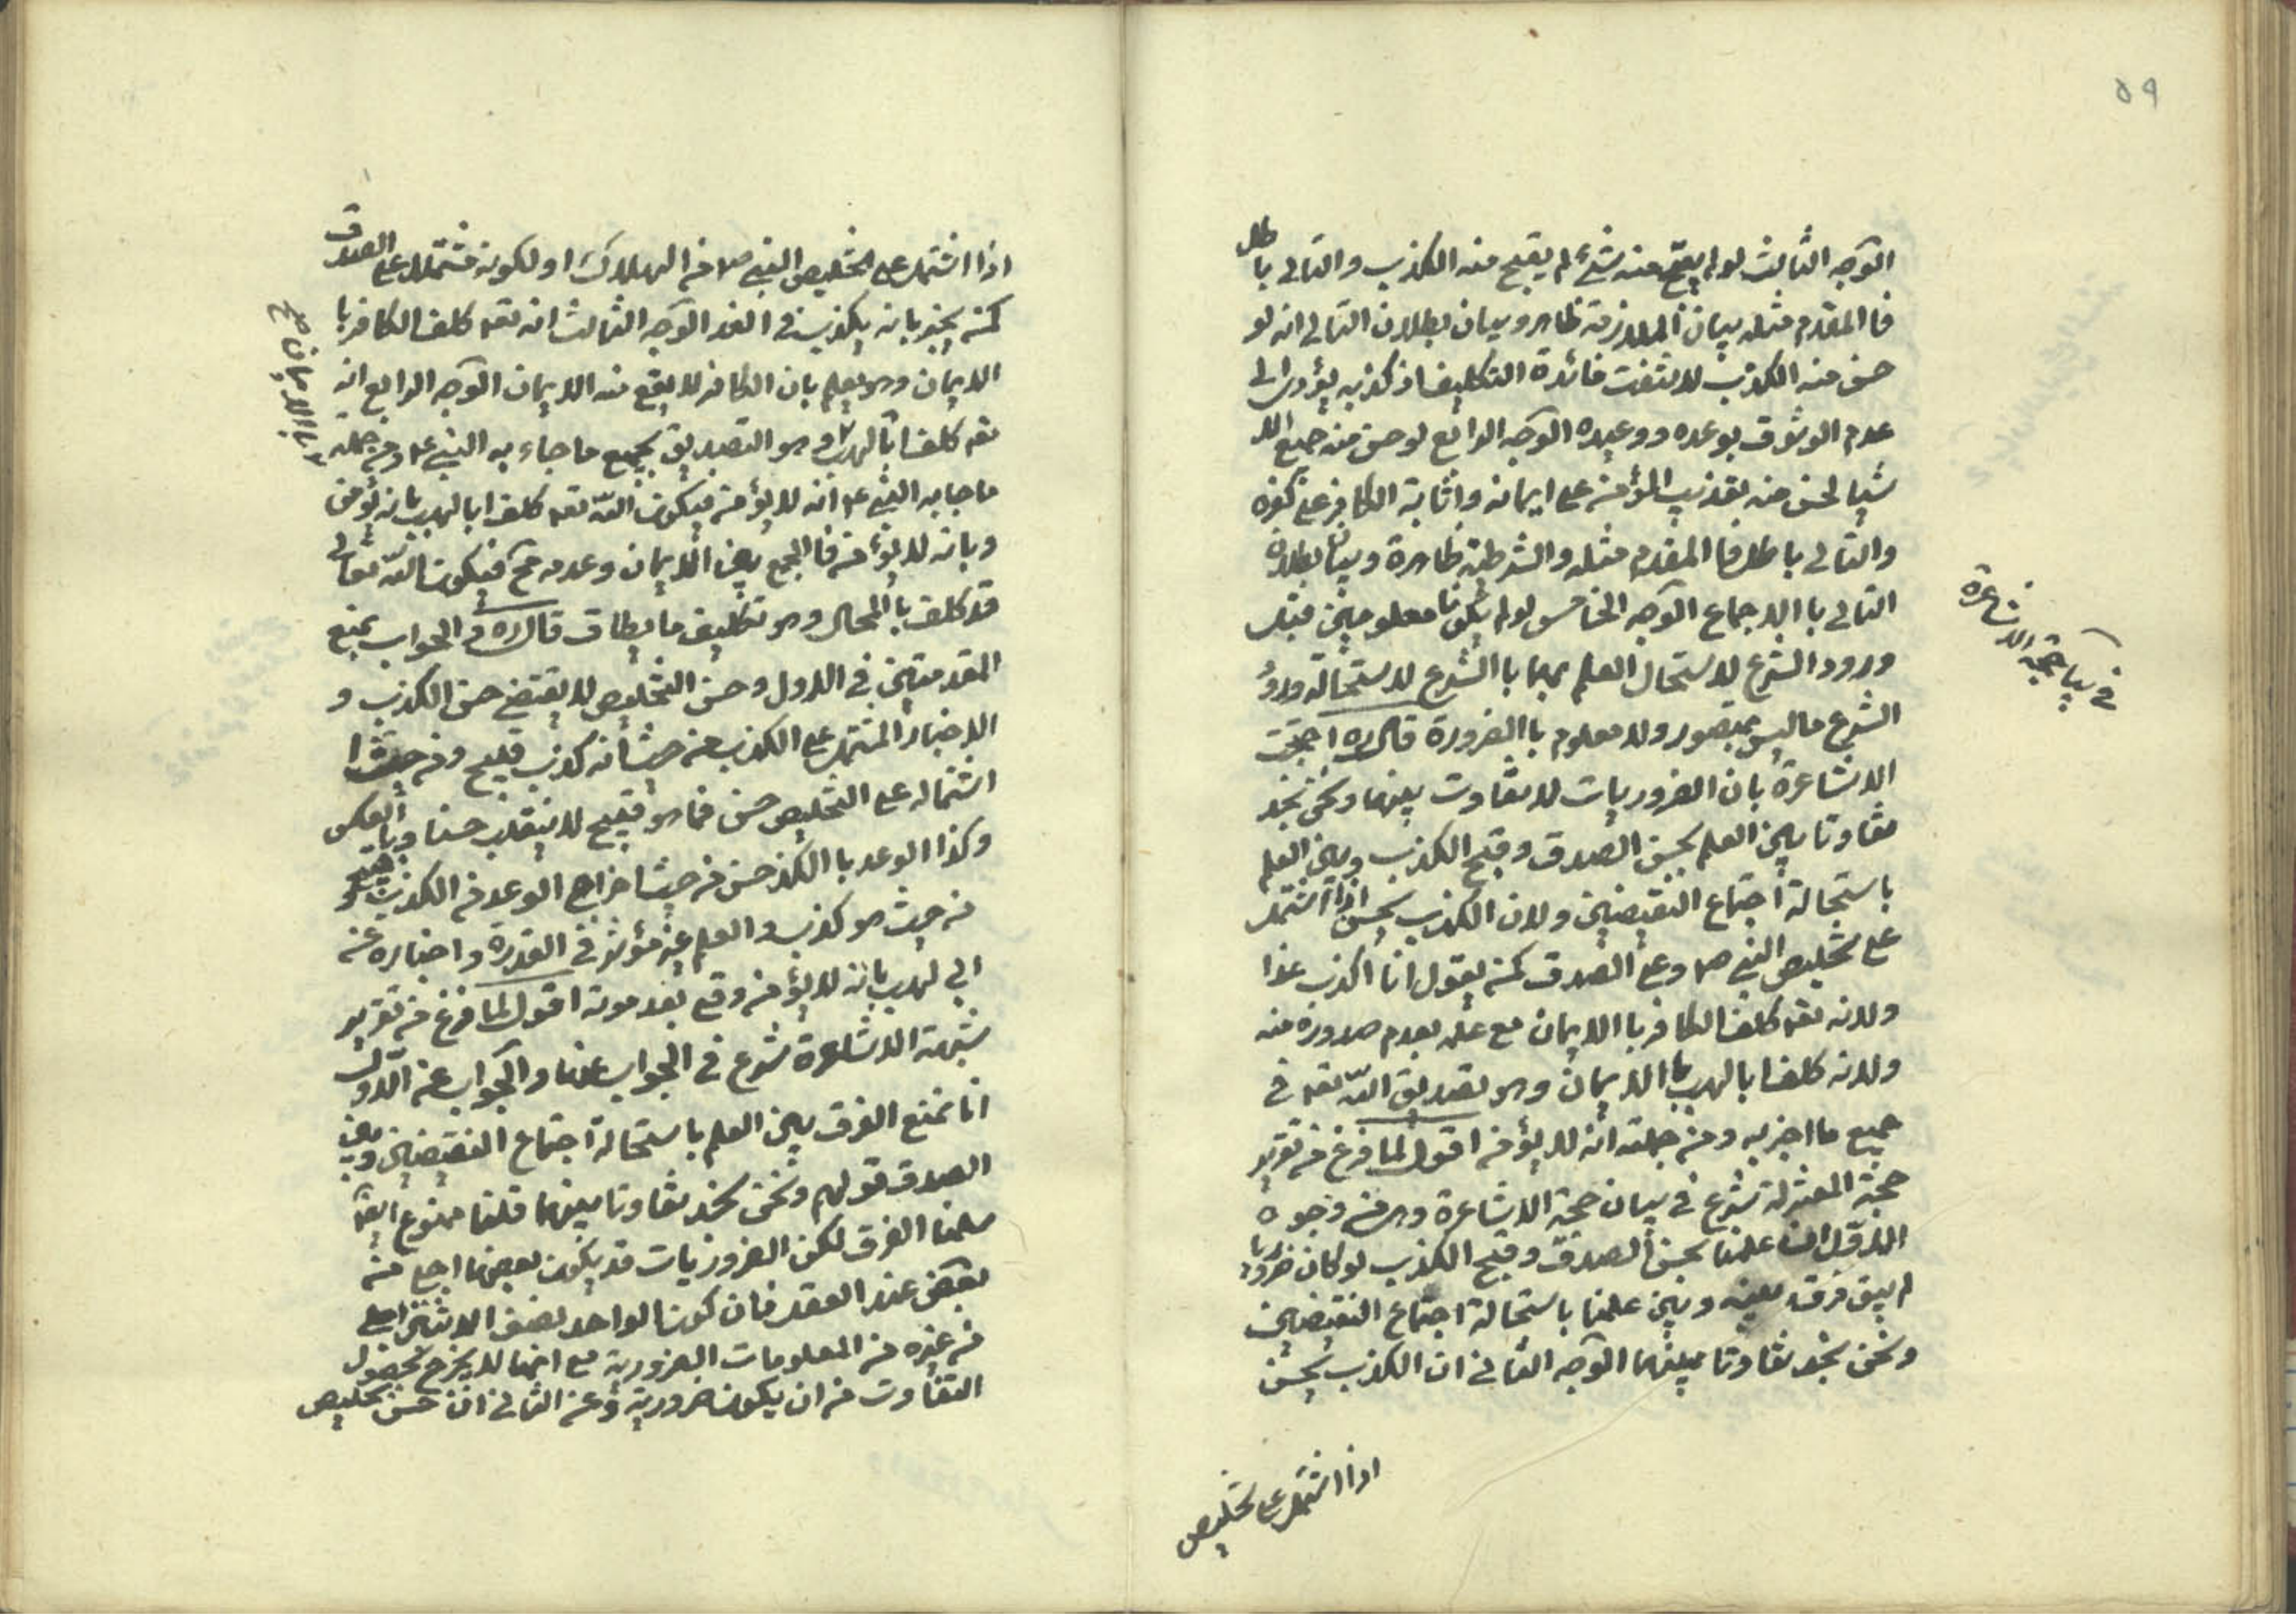 ٥٩
الوجه الثالث لو لم يقبح منه شئ لم يقبح منه الكذب والتالى باطل
فا المقدم مثله بيان الملازمة ظاهر وبيان بطلان التالى انه لو
حسن منه الكذب لانتفت فائدة التكليف اذ كذبه يؤدى الى
عدم الوثوق بوعده ووعيده الوجه الرابع لو حسن منه جميع الا
شيا لحسن منه تعذيب المؤمن على ايمانه واثابة الكافر على كفره
والتالى باطل فا المقدم مثله والشرطية ظاهرة وبيان بطلان
التالى با الاجماع الوجه الخامس لو لم يكونا معلومين قبل
ورود الشرع لاستحال العلم بهما با الشرع لاستحالة ورود
الشرع ما ليس بمتصور ولا معلوم با الضرورة قال ره احتجت
الاشاعرة بان الضروريات لا تفاوت بينهما ونحن نجد
تفاوتا بين العلم بحسن الصدق وقبح الكذب وبين العلم
باستحالة اجتماع النقيضين ولان الكذب يحسن اذا اشتمل
على تخليص النبى ص وعلى الصدق كمن يقول انا اكذب غدا
ولانه تعه كلف الكافر با الايمان مع علمه بعدم صدوره منه
ولانه كلف ابا لهب با الايمان وهو تصديق الله تعه فى
جميع ما اخبر به ومن جملته انه لا يؤمن اقول لما فرغ من تقرير
حجة المعتزلة شرع فى بيان حجة الاشاعرة وهى من وجوه
الاول ان علمنا بحسن الصدق وقبح الكذب لو كان ضروريا
لم يبق فرق بينه وبين علمنا باستحالة اجتماع النقيضين
ونحن نجد تفاوتا بينهما الوجه الثانى ان الكذب يحسن
اذا اشتمل على تخليص
فى بيان حجة الاشاعرة
اذا اشتمل على تخليص النبى ص من الهلاك او لكونه مشتملا على الصدق
كمن يخبر بانه يكذب فى الغد الوجه الثالث انه تعه كلف الكافر با
الايمان وهو يعلم بان الكافر لا يقع منه الايمان الوجه الرابع انه
تعه كلف ابا لهب وهو التصديق بجميع ما جاء به النبى ع ومن جملة
ما جا به النبى ع انه لا يؤمن فيكون الله تعه كلف ابا لهب بانه يؤمن
وبانه لا يؤمن فا الجمع بين الايمان وعدمه مح فيكون الله تعالى
قد كلف با المحال وهو تكليف ما يطاق قال ره فى الجواب بمنع
المقدمتين فى الاول وحسن التخليص لا يقتضى حسن الكذب و
الاخبار المشتمل على الكذب من حيث انه كذب قبيح ومن حيث
اشتماله على التخليص حسن فما هو قبيح لا ينقلب حسنا وبا العكس
وكذا الوعد با الكذ حسن من حيث اخراج الوعد من الكذب وقبيح
من حيث هو كذب والعلم غير مؤثر فى القدرة واخباره عن
ابى لهب بانه لا يؤمن وقع بعد موته اقول لما فرغ من تقرير
شبهة الاشاعرة شرع فى الجواب عنها والجواب عن الاول
انا نمنع الفرق بين العلم باستحالة اجتماع النقيضين وبين
الصدق قولهم ونحن نجد تفاوتا بينهما قلنا ممنوع ايضا
سلمنا الفرق لكن الضروريات قد يكون بعضها اجلى من
بعض عند العقل فان كون الواحد نصف الاثنين اجلى
من غيره من المعلومات الضرورية مع انها لا يخرج بحصول
التفاوت من ان يكون ضرورية وعن الثانى ان حسن تخليص